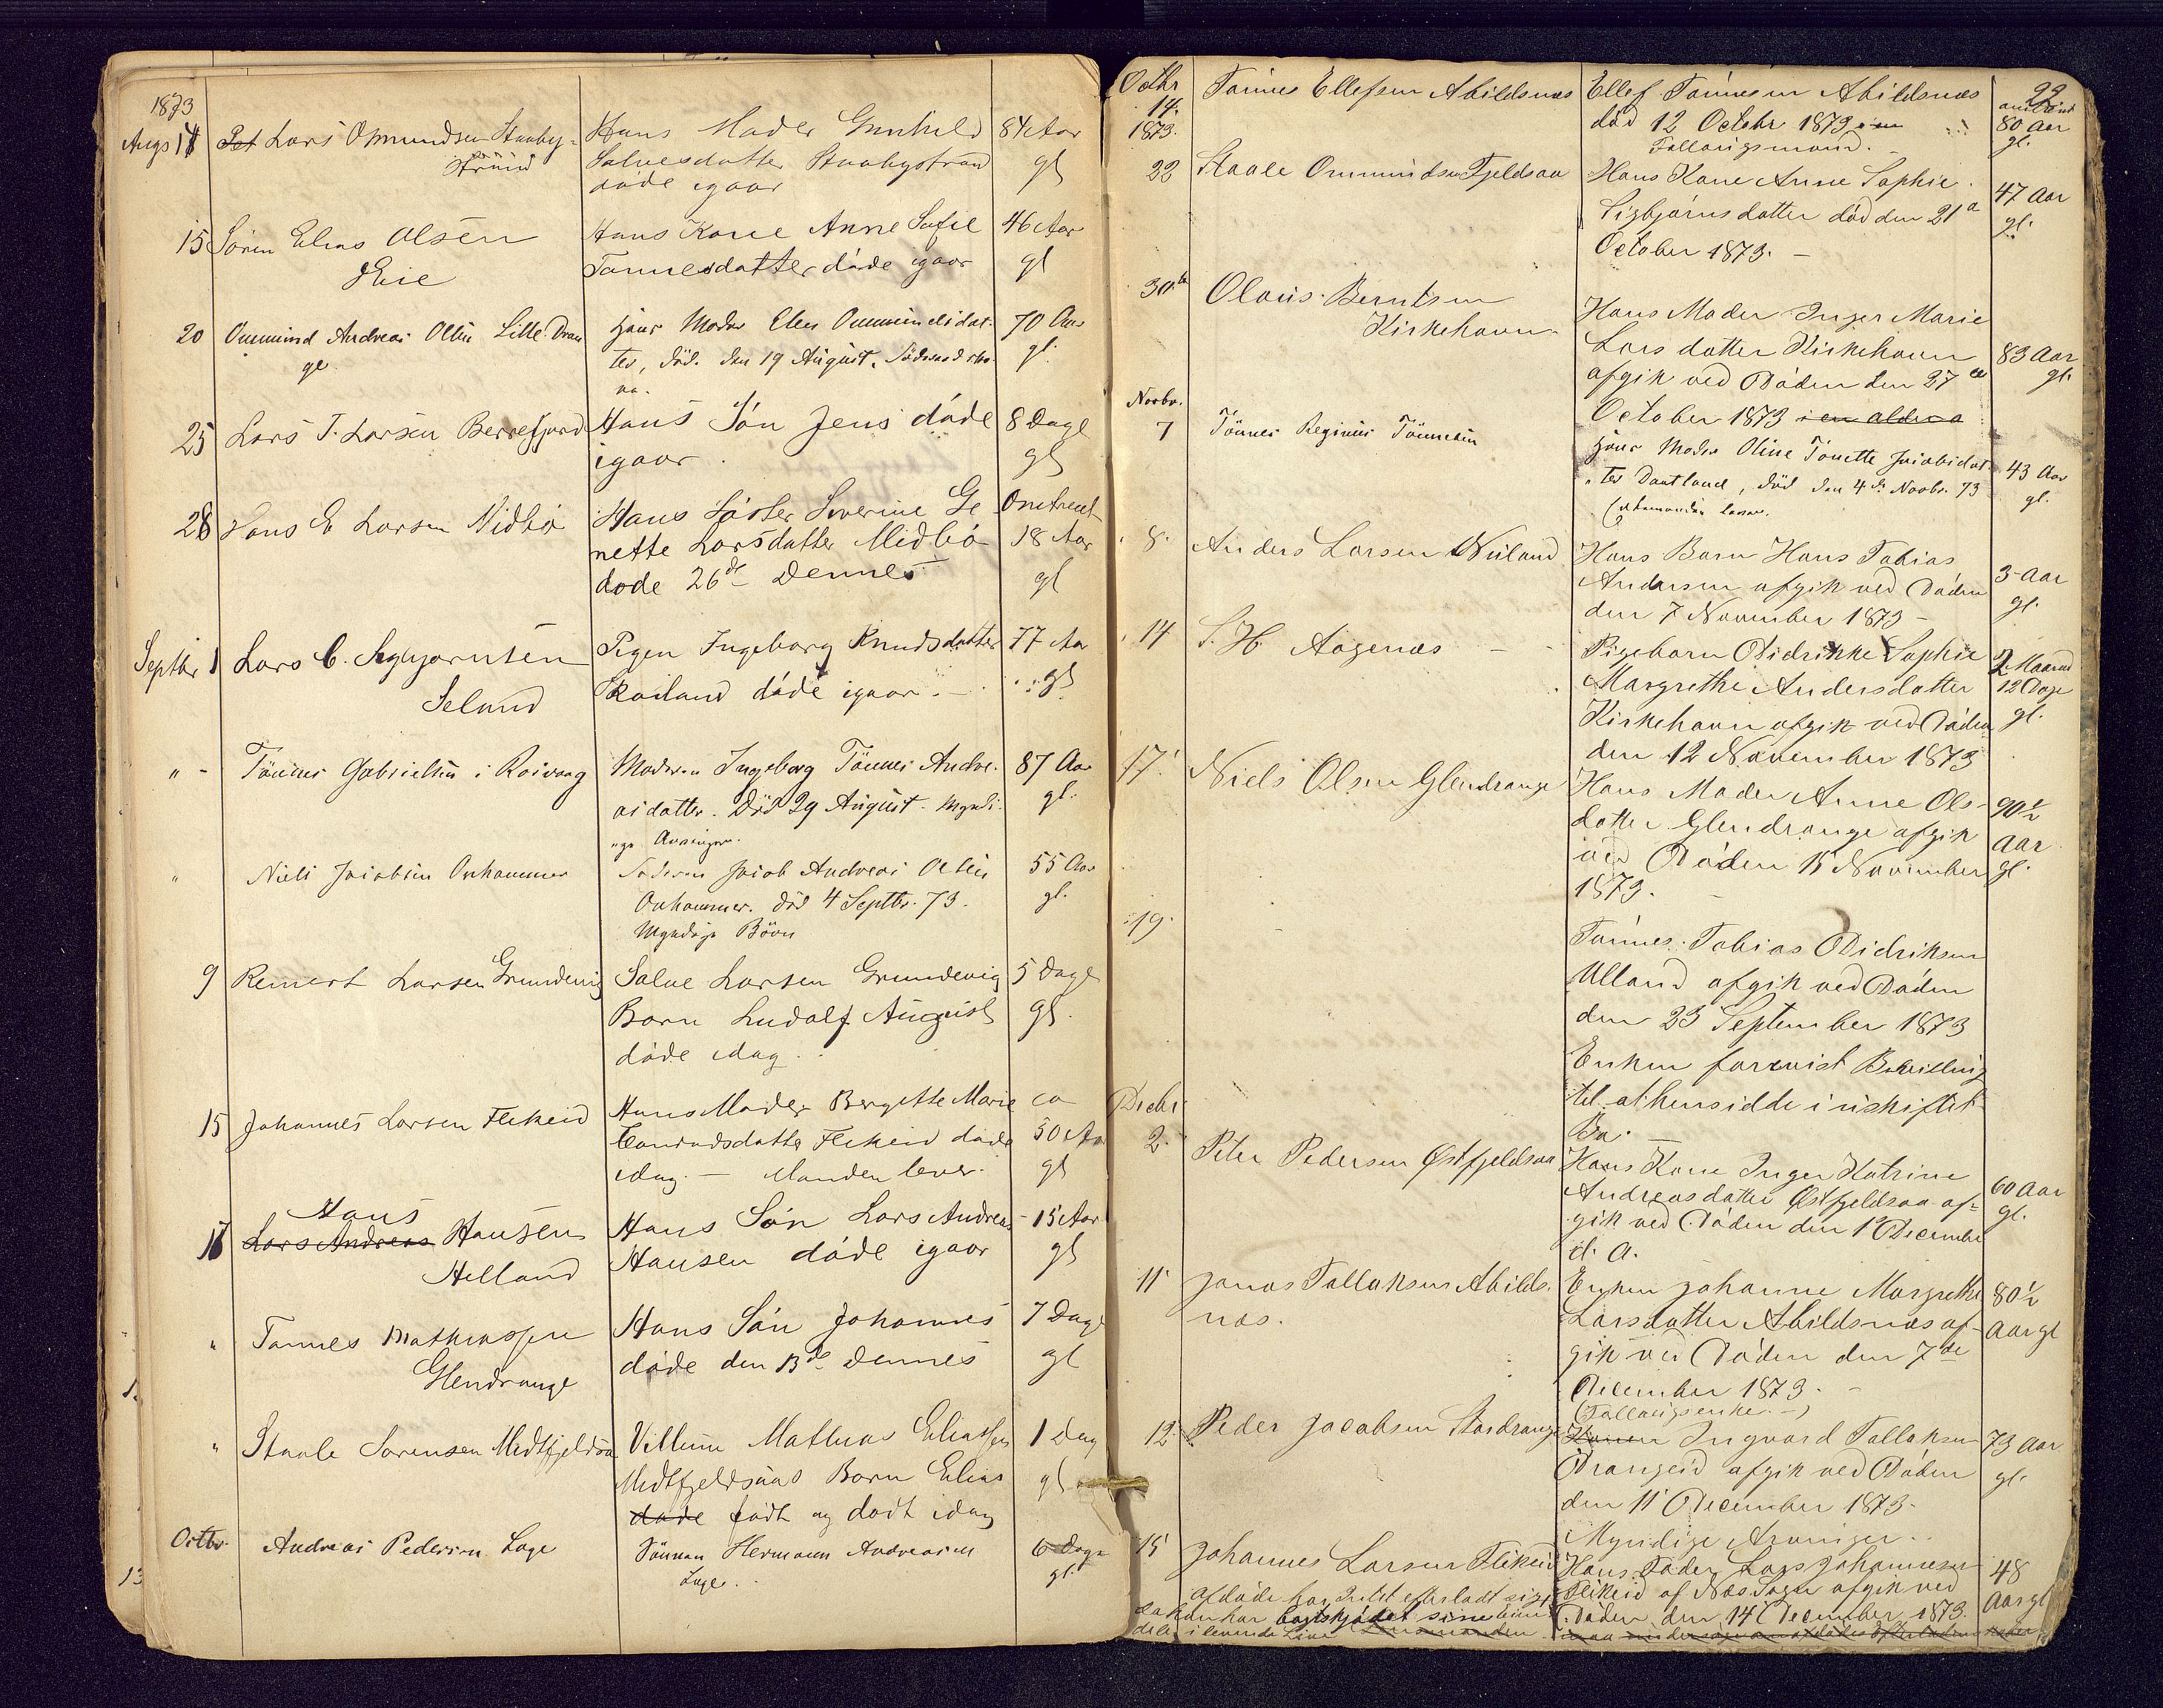 1873
Augs 14 Lars Omundsen Stuaby=
strand
Hans Moder Gunhild 84 Aar
Salvesdatter Stuabystrand gl
døde igaar
15 Sören Elias Olsen
Eie
Hans Kone Anne Sofie 46 Aar
Tønnesdatter døde igaar gl
20 Ommund Andreas Olsen Lille Dran
ge
Hans Moder Elen Ommundsdat= 70 Aar
ter, død. den 19 August. gl.
25 Lars T. Larsen Berrefjord
Hans Søn Jens døde 8 Dage
igaar. gl
28 Hans E Larsen Midbø
Hans Søster Severine Ge Omtrent
nette Larsdatter Midbø 18 Aar
døde 26de Dennes gl
Septbr 1 Lars C. Sigbjørnsen
Seland
Pigen Ingeborg Knudsdatter 77 Aar
døde igaar. gl
" Tönnes Gabrielsen i Roivaag
Moderen Ingeborg Tönnes Andre- 87 Aar
asdatter. Död 29 August. Myndi- gl.
ge Arvinger.
" Niels Jacobsen Oxhammer
Faderen Jacob Andreas Olsen 55 Aar
Oxhammer. död 4 Septbr. 73. gl.
Myndige Börn
9 Reinert Larsen Grundevig
Salve Larsen Grundevig 5 Dage
Barn Ludolf August gl.
døde idag.
15 Johannes Larsen Flikeid
Hans Moder Bergette Marie ca
Conradsdatter Flikeid døde 50 Aar
idag. — Manden lever. gl
Hans
17 Lars Andreas Hansen
Helland
Hans Søn Lars Andreas 15 Aar
Hansen døde igaar gl
" Tønnes Mathiassen
Glendrange
Hans Søn Johannes 7 Dage
døde den 13de Dennes gl
" Staale Sørensen Midtfjeldsaa
Villum Mathias Eliassen 1 Dag
Midtfjeldsaas Barn Elias gl
døde født og død idag
Octbr. Andreas Pedersen Lage
Sönnen Hermann Andreasen 6 Dage
Lage. gl.
99
Octbr
14.
1873.
Tønnes Ellefsen Abildsnæs
Ellef Tønnesen Abildsnæs omtrent
död 12 Octobr 1873 80 Aar
Fattigmand. gl.
22 Staale Ommundsen Fjeldsaa
Hans Kone Anne Sophie 47 Aar
Sigbjørnsdatter død den 21de gl.
October 1873. —
30te Olaus Berntsen
Kirkehavn
Hans Moder Inger Marie
Larsdatter Kirkehavn 83 Aar
afgik ved Døden den 27de gl.
October 1873 i en alder a
Novbr.
7 Tönnes Reginius Tönnesen
Hans Moder Oline Tönette Jacobsdat- 43 Aar
ter Dautland, död den 4de Novbr. 73 gl.
8. Anders Larsen Niland
Hans Barn Hans Tobias
Andersen afgik ved Døden 3 Aar
den 7 November 1873 — gl.
14 S. H. Aagenæs
Pigebarn Didrikke Sophie 2 Maaned
Margrethe Andersdatter 12 Dage
Kirkehavn afgik ved Døden gl.
den 12 November 1873
17. Niels Olsen Glendrange
Hans Moder Anne Ols- 90½
datter Glendrange afgik Aar
ved Døden 15 November gl.
1873.
19.
Tønnes Tobias Didriksen
Ulland afgik ved Døden
den 23 September 1873
Enken forevist Bevilling
til at hensidde i uskiftet
Bo. —
Decbr
2. Peter Pedersen Østfjeldsaa
Hans Kone Inger Katrine 60 Aar
Andreasdatter Østfjeldsaa af= gl.
gik ved Døden den 1 December
d. A.
11 Jonas Tallaksen Abilds-
næs.
Enken Johanne Margrethe 80½
Larsdatter Abildsnæs af- Aar gl
gik ved Døden den 7de
December 1873. —
(Fattigenke.—)
12. Peder Jacobsen Stordrange
Konen Ingvard Tallaksen 73 Aar
Drangeid afgik ved Døden gl.
den 11 December 1873.
Myndige Arvinger.
15 Johannes Larsen Flikeid
Hans Fader Lars Johannesen 48
Flikeid af Næs Sogn afgik ved Aar gl
Døden den 14 December 1873.
Afdøde har Intet efterladt sig,
da han har bortskjödet sine eien
dele i levende Live Lensmanden